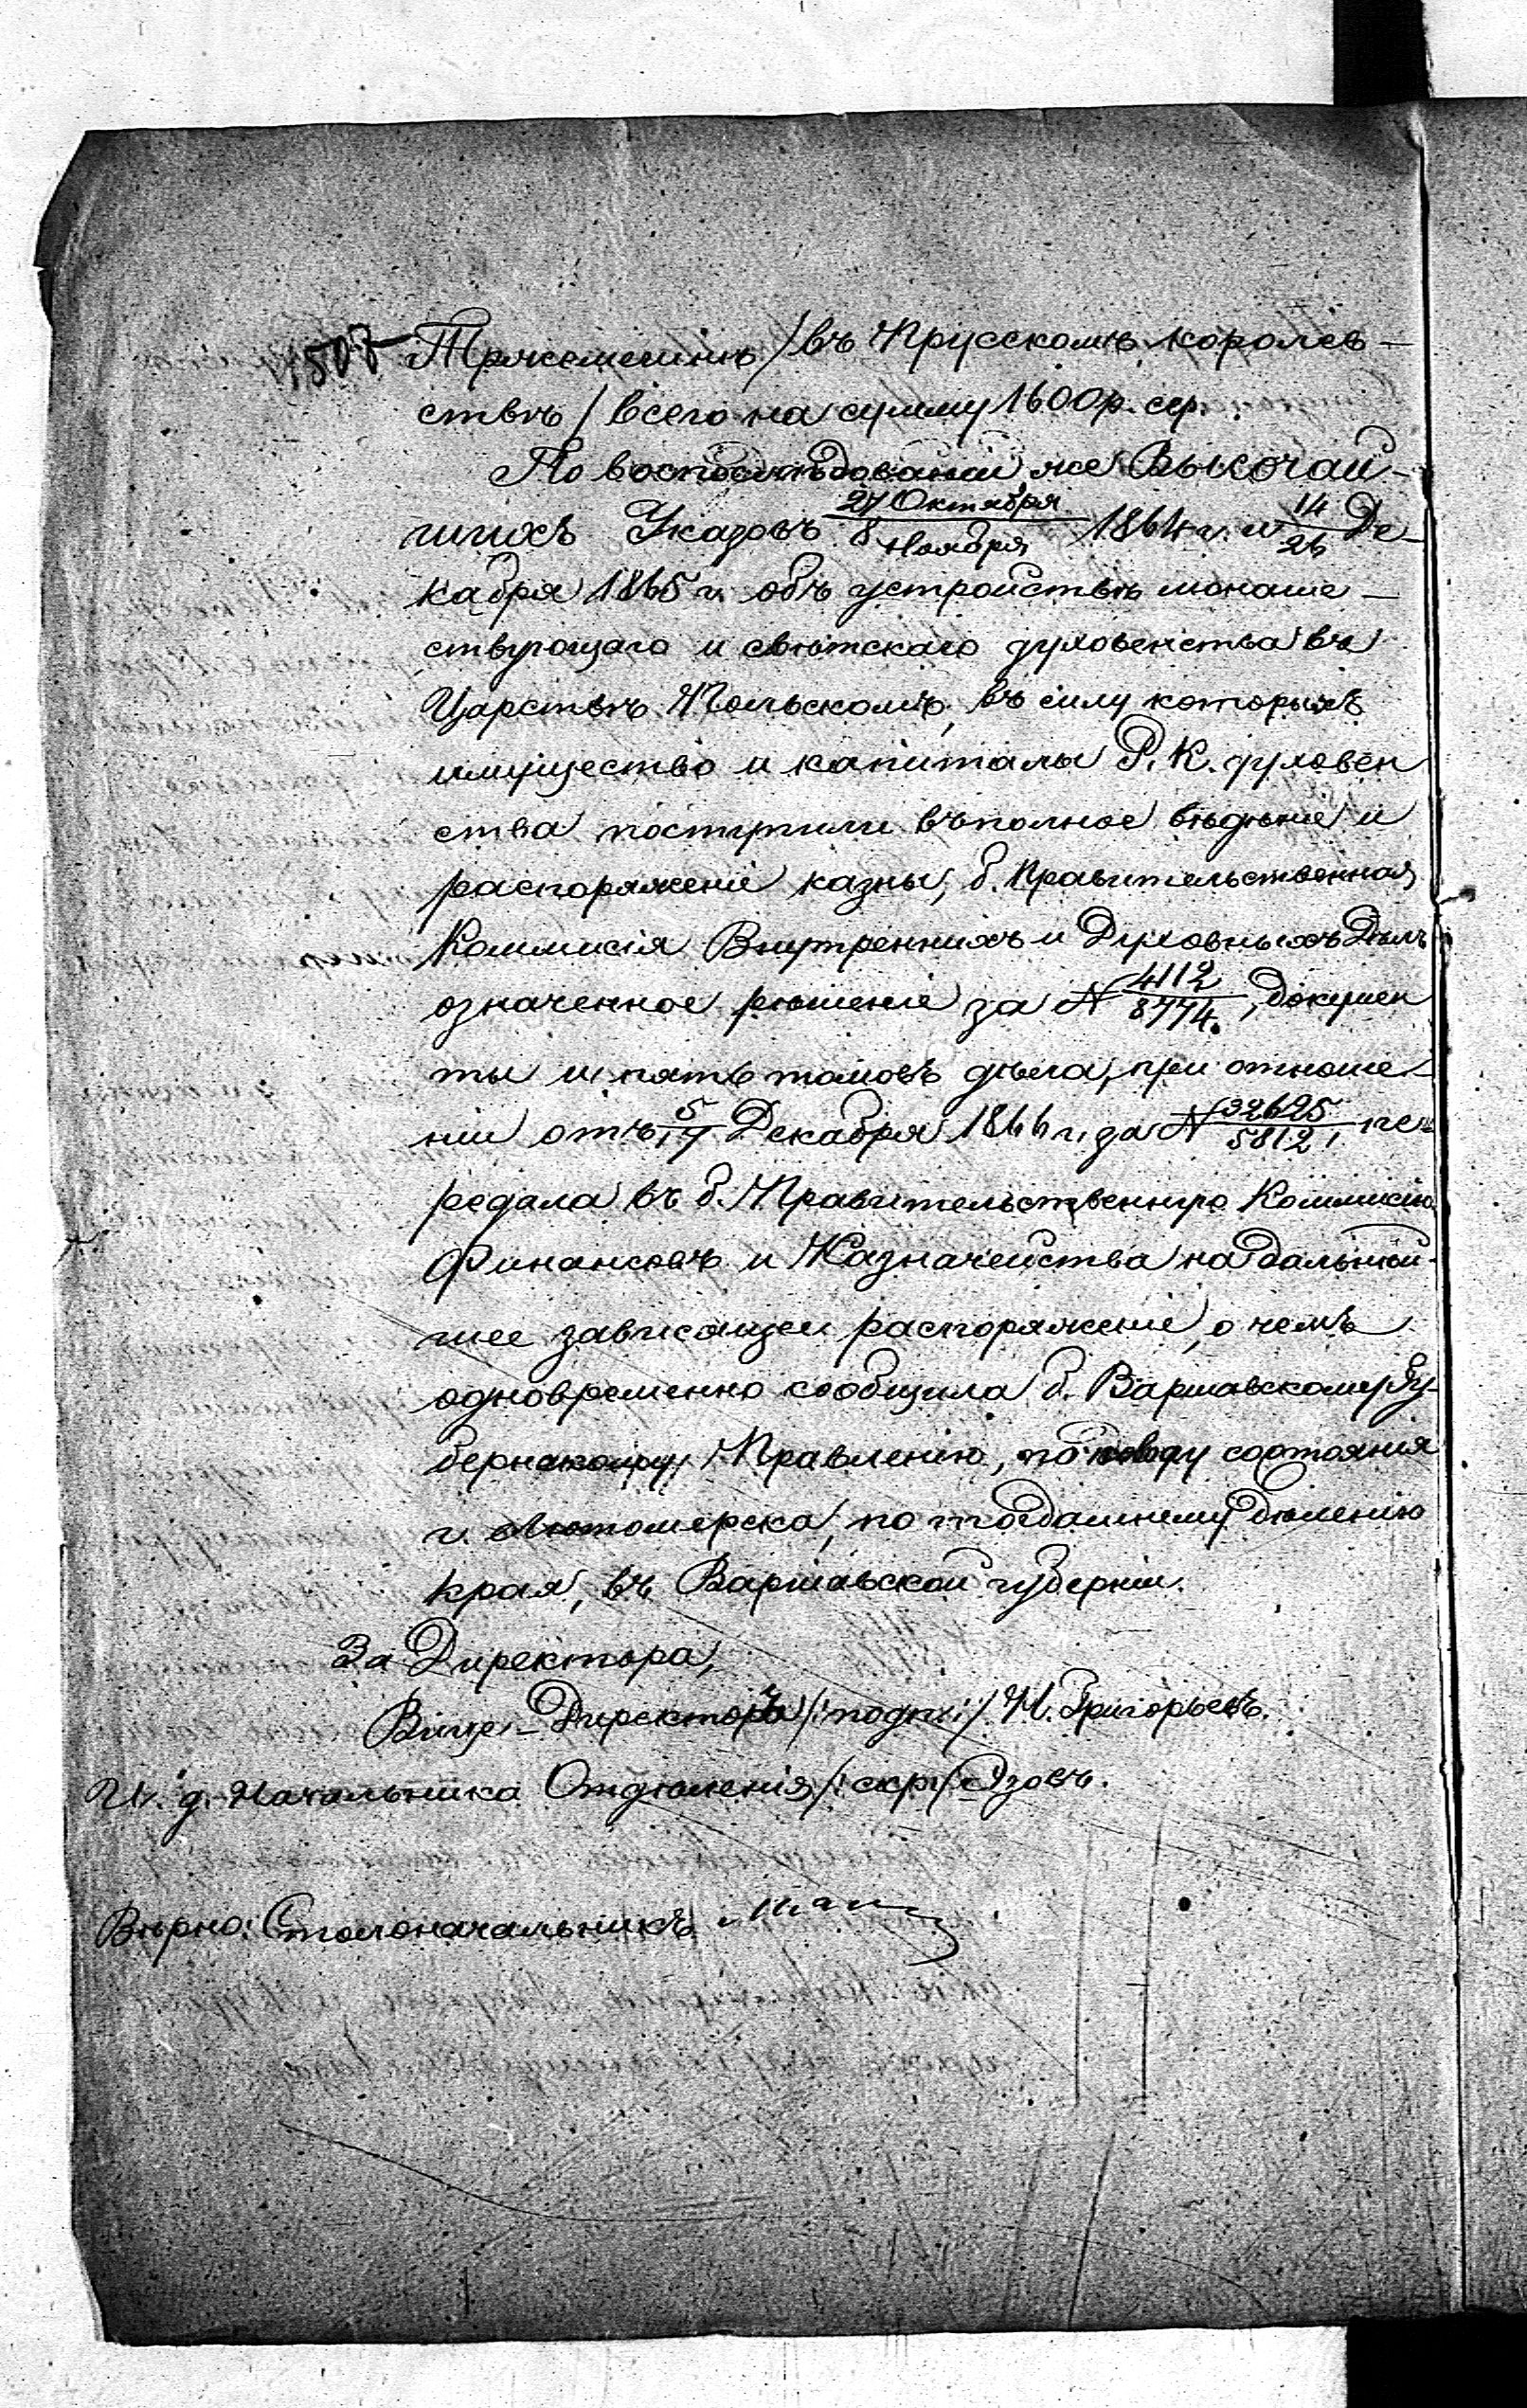 Тржемешнѣ /въ Прусскомъ королев-
ствѣ/ всего на сумму 1600 р. сер.
По воспослѣдованіи же Высочай-
шихъ Указовъ 27 Октября/8 Ноября 1864 г. и 14/26 Де-
кабря 1865 г. объ устройствѣ монаше-
ствующаго и свѣтскаго духовенства въ
Царствѣ Польскомъ, въ силу которыхъ
имущество и капиталы Р. К. духовен
ства поступили въ полное вѣдѣніе и
распоряженіе казны, б. Правительственная
Коммисія Внутреннихъ и Духовныхъ Дѣлъ
означенное рѣшеніе за № 4112/8774, докумен
ты и пять томовъ дѣла, при отноше-
ніи отъ 5/17 Декабря 1866 г. за № 32625/5812, пе-
редала въ б. Правительственную Коммисію
Финансовъ и Казначейства на дальнѣй-
шее зависящее распоряженіе, о чемъ
одновременно сообщила б. Варшавскому Гу-
бернскому Правленію, по поводу состоянія
г. Лютомерска, по тогдашнему дѣленію
края, въ Варшавской губерніи.
За Директора,
Вице-Директоръ /:подп:/ Н. Григорьевъ.
И. д. Начальника Отдѣленія /:скр:/ Азовъ.
Вѣрно: Столоначальникъ